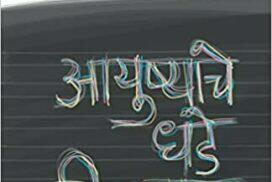 आयुष्याचे
धडे